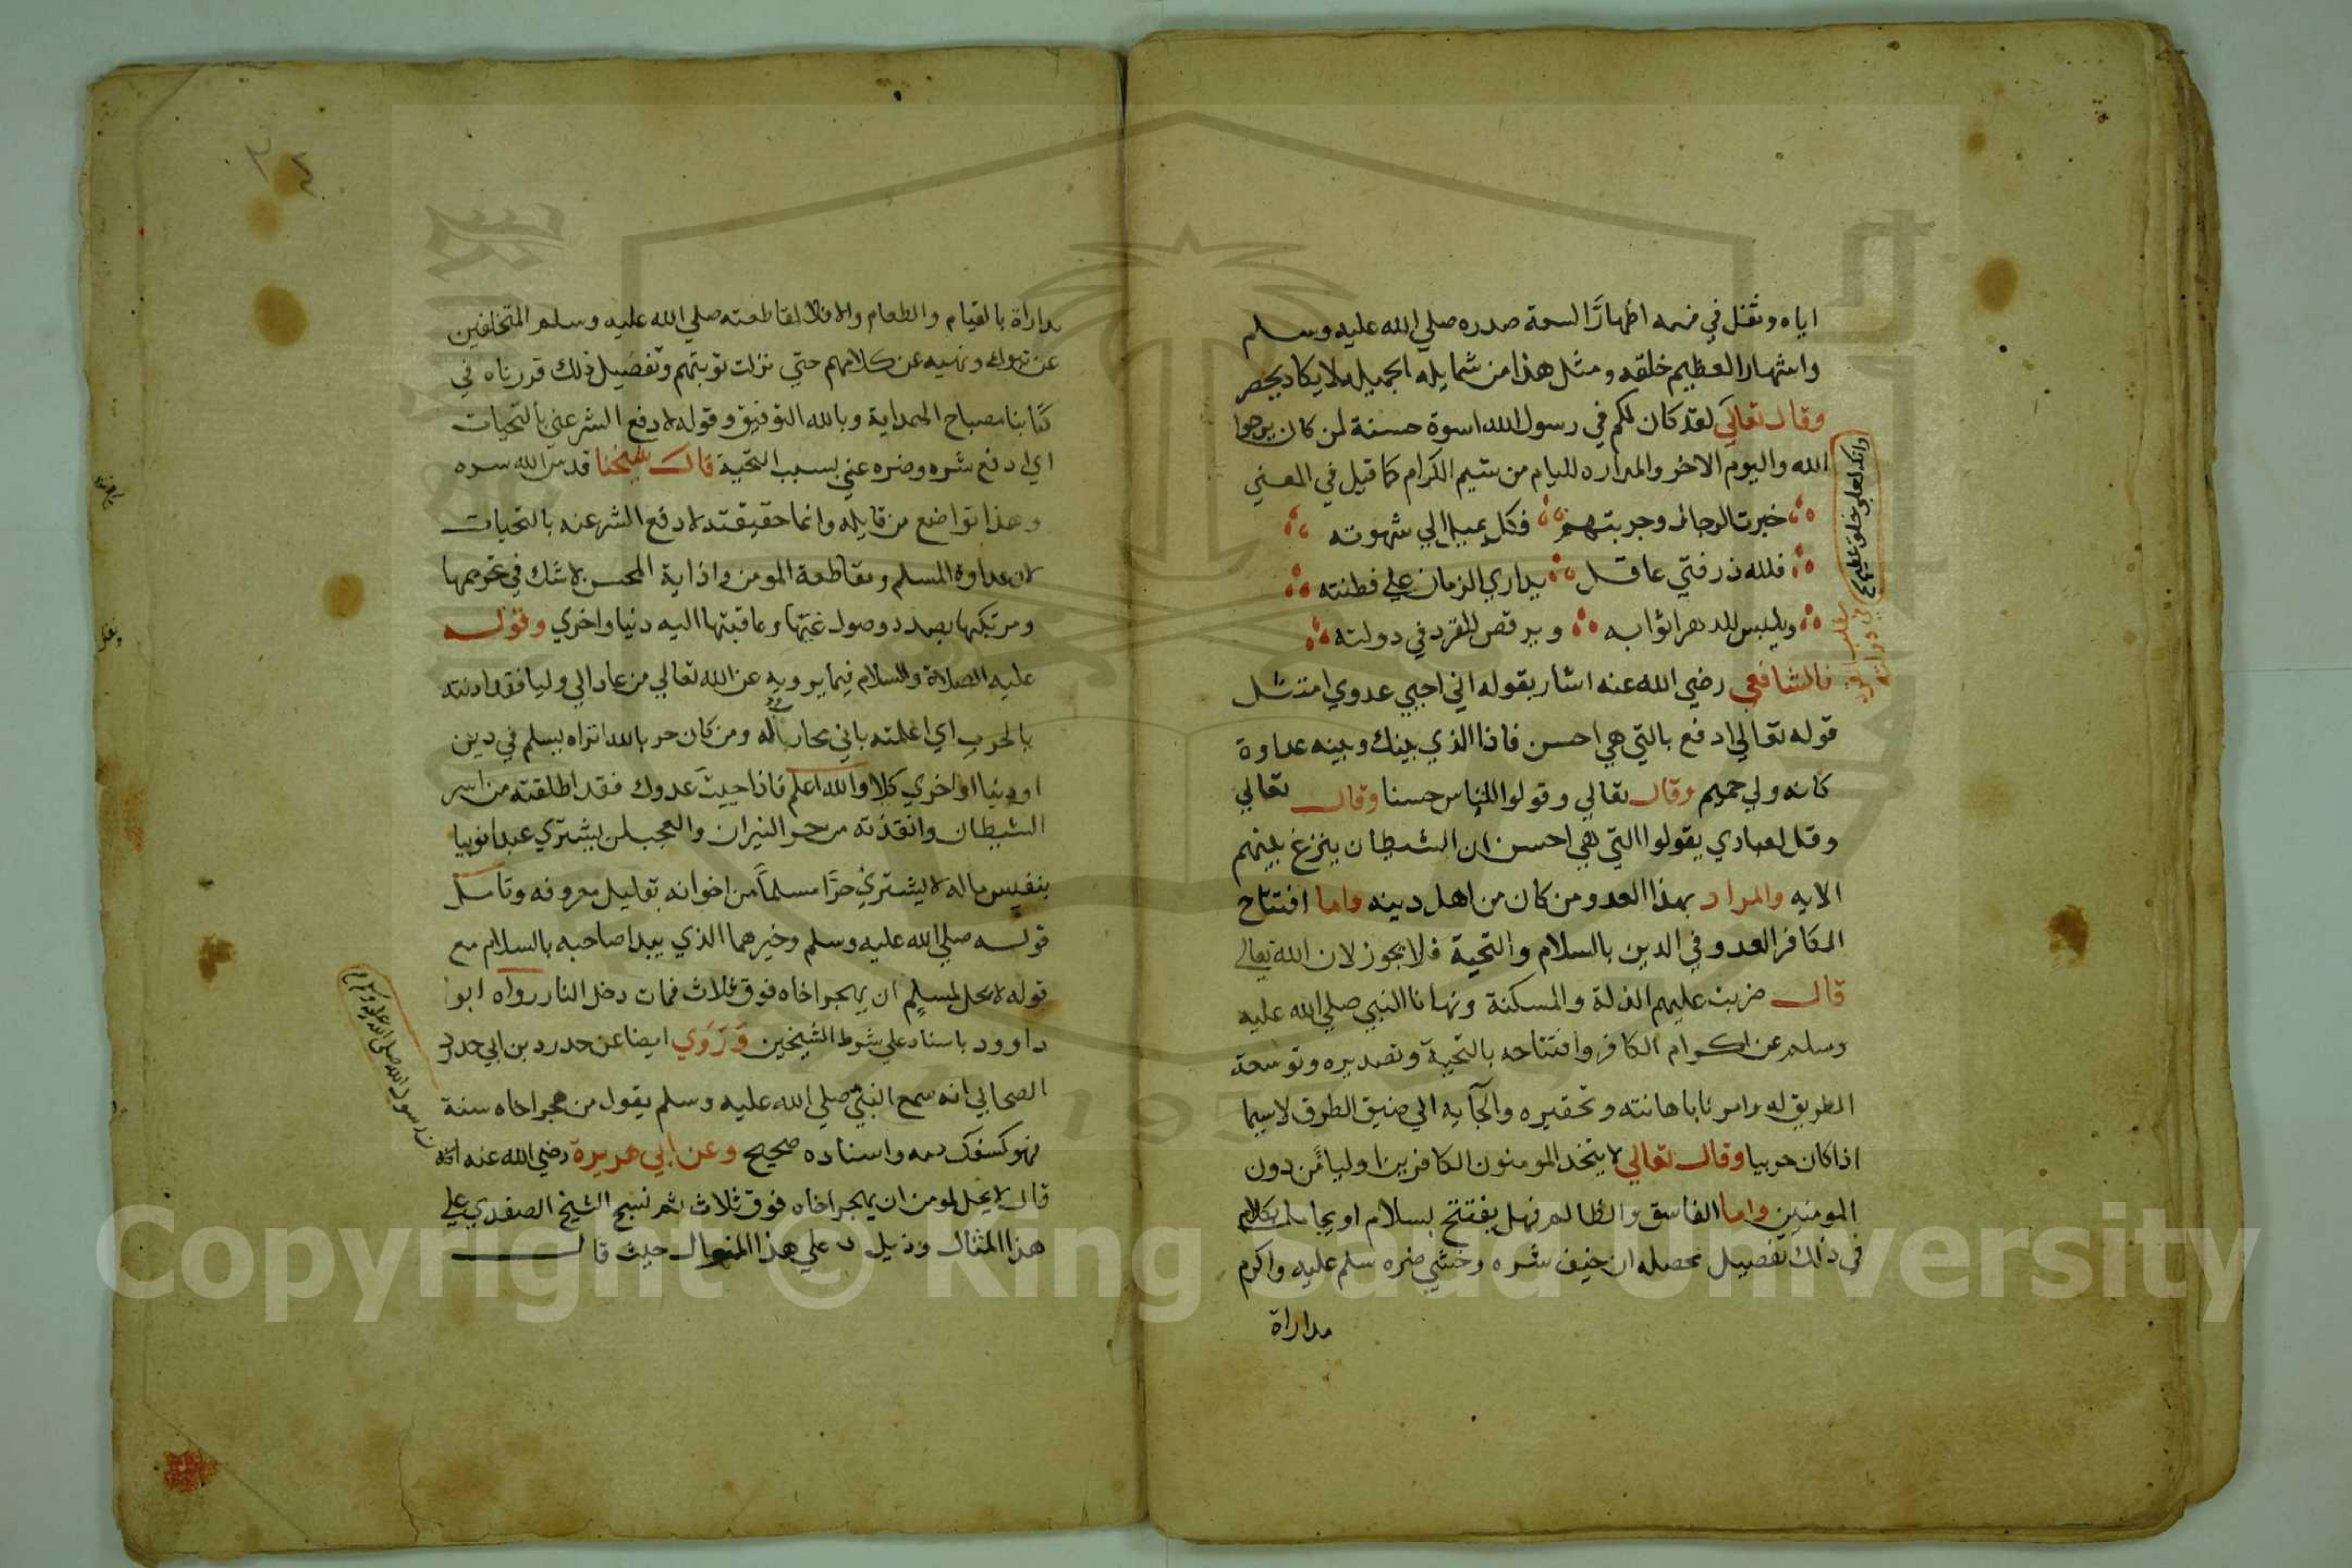 اياه وتفل في فمه اظهارًا لسعة صدره صلي الله عليه وسلم
واشتهار العظيم خلقه ومثل هذا من شمايله الجميله لا يكاد يحصر
وقال تعالي لقد كان لكم في رسول الله اسوة حسنة لمن كان يرجوا
وانك لعلي خلق عظيم
الله واليوم الاخر والمداره لليام من شيم الكرام كما قيل في المعني
خبرت الرجال وجربتهم فكل يميل الي شهوته
فلله در فتي عاقل يداري الزمان علي فطنته
ويلبس للدهر اثوابه ويرقص للقرد في دولته
فالشافعي رضي الله عنه اشار بقوله اني احيي عدوي امتثل
قوله تعالي ادفع بالتي هي احسن فاذا الذي بينك وبينه عداوة
كانه ولي حميم وقال تعالي وقولوا للناس حسنا وقال تعالي
وقل لعبادي يقولوا التي هي احسن ان الشيطان ينزغ بينهم
الايه والمراد بهذا العدو من كان من اهل دينه واما افتتاح
الكافر العدو في الدين بالسلام والتحية فلا يجوز لان الله تعالي
قال ضربت عليهم الذلة والمسكنة ونهانا النبي صلي الله عليه
وسلم عن اكرام الكافر وافتتاحه بالتحية وتصديره وتوسعة
الطريق له وامرنا باهانته وتحقيره والجآيه الي ضيق الطرق لاسيما
اذا كان حربيا وقال تعالي لا يتخذ المومنون الكافرين اوليا من دون
المومنين واما الفاسق والظالم فهل يفتتح بسلام او يجامل بكلام
في ذلك تفصيل محصله ان خيف شره وخشي ضره سلم عليه واكرم
مداراة
مداراة بالقيام والطعام والا فلا لمقاطعته صلي الله عليه وسلم المتخلفين
عن تبوك ونهيه عن كلامهم حتي نزلت توبتهم وتفصيل ذلك قررناه في
كتابنا مصباح الهداية وبالله التوفيق وقوله لادفع الشر عني بالتحيات
اي ادفع شره وضره عني بسبب التحية قال شيخنا قدس الله سره
وهذا تواضع من قايله وانما حقيقته لادفع الشر عنه بالتحيات
لان عداوة المسلم ومقاطعة المومن واذاية المحسن لا شك في تحريمها
ومرتكبها بصدد وصول غبتها وعاقبتها اليه دنيا واخري وقوله
عليه الصلاة والسلام فيما يرويه عن الله تعالي من عادا لي وليا فقد اذنته
بالحرب اي اعلمته باني محارب له ومن كان حرب الله اتراه يسلم في دين
او دنيا او اخري كلا والله اعلم فاذا حييت عدوك فقد اطلقته من اسر
الشيطان وانقذته من حر النيران والعجب لمن يشتري عبدا نوبيا
بنفيس ماله لا يشتري حرًا مسلمًا من اخوانه بقليل معروفه وتامل
قوله صلي الله عليه وسلم وخيرهما الذي يبدا صاحبه بالسلام مع
قوله لا يحل لمسلم ان يهجر اخاه فوق ثلاث فمات دخل النار رواه ابو
داوود باسناد علي شرط الشيخين وروي ايضا عن حدرد بن ابي حدرد
الصحابي انه سمع النبي صلي الله عليه وسلم يقول من هجر اخاه سنة
فهو كسفك دمه واسناده صحيح وعن ابي هريرة رضي الله عنه ان
رسول الله صلي الله عليه وسلم
قال لا يحل لمومن ان يهجر اخاه فوق ثلاث ثم نسج الشيخ الصفدي علي
هذا المثال وذيل علي هذا المنوال حيث قال